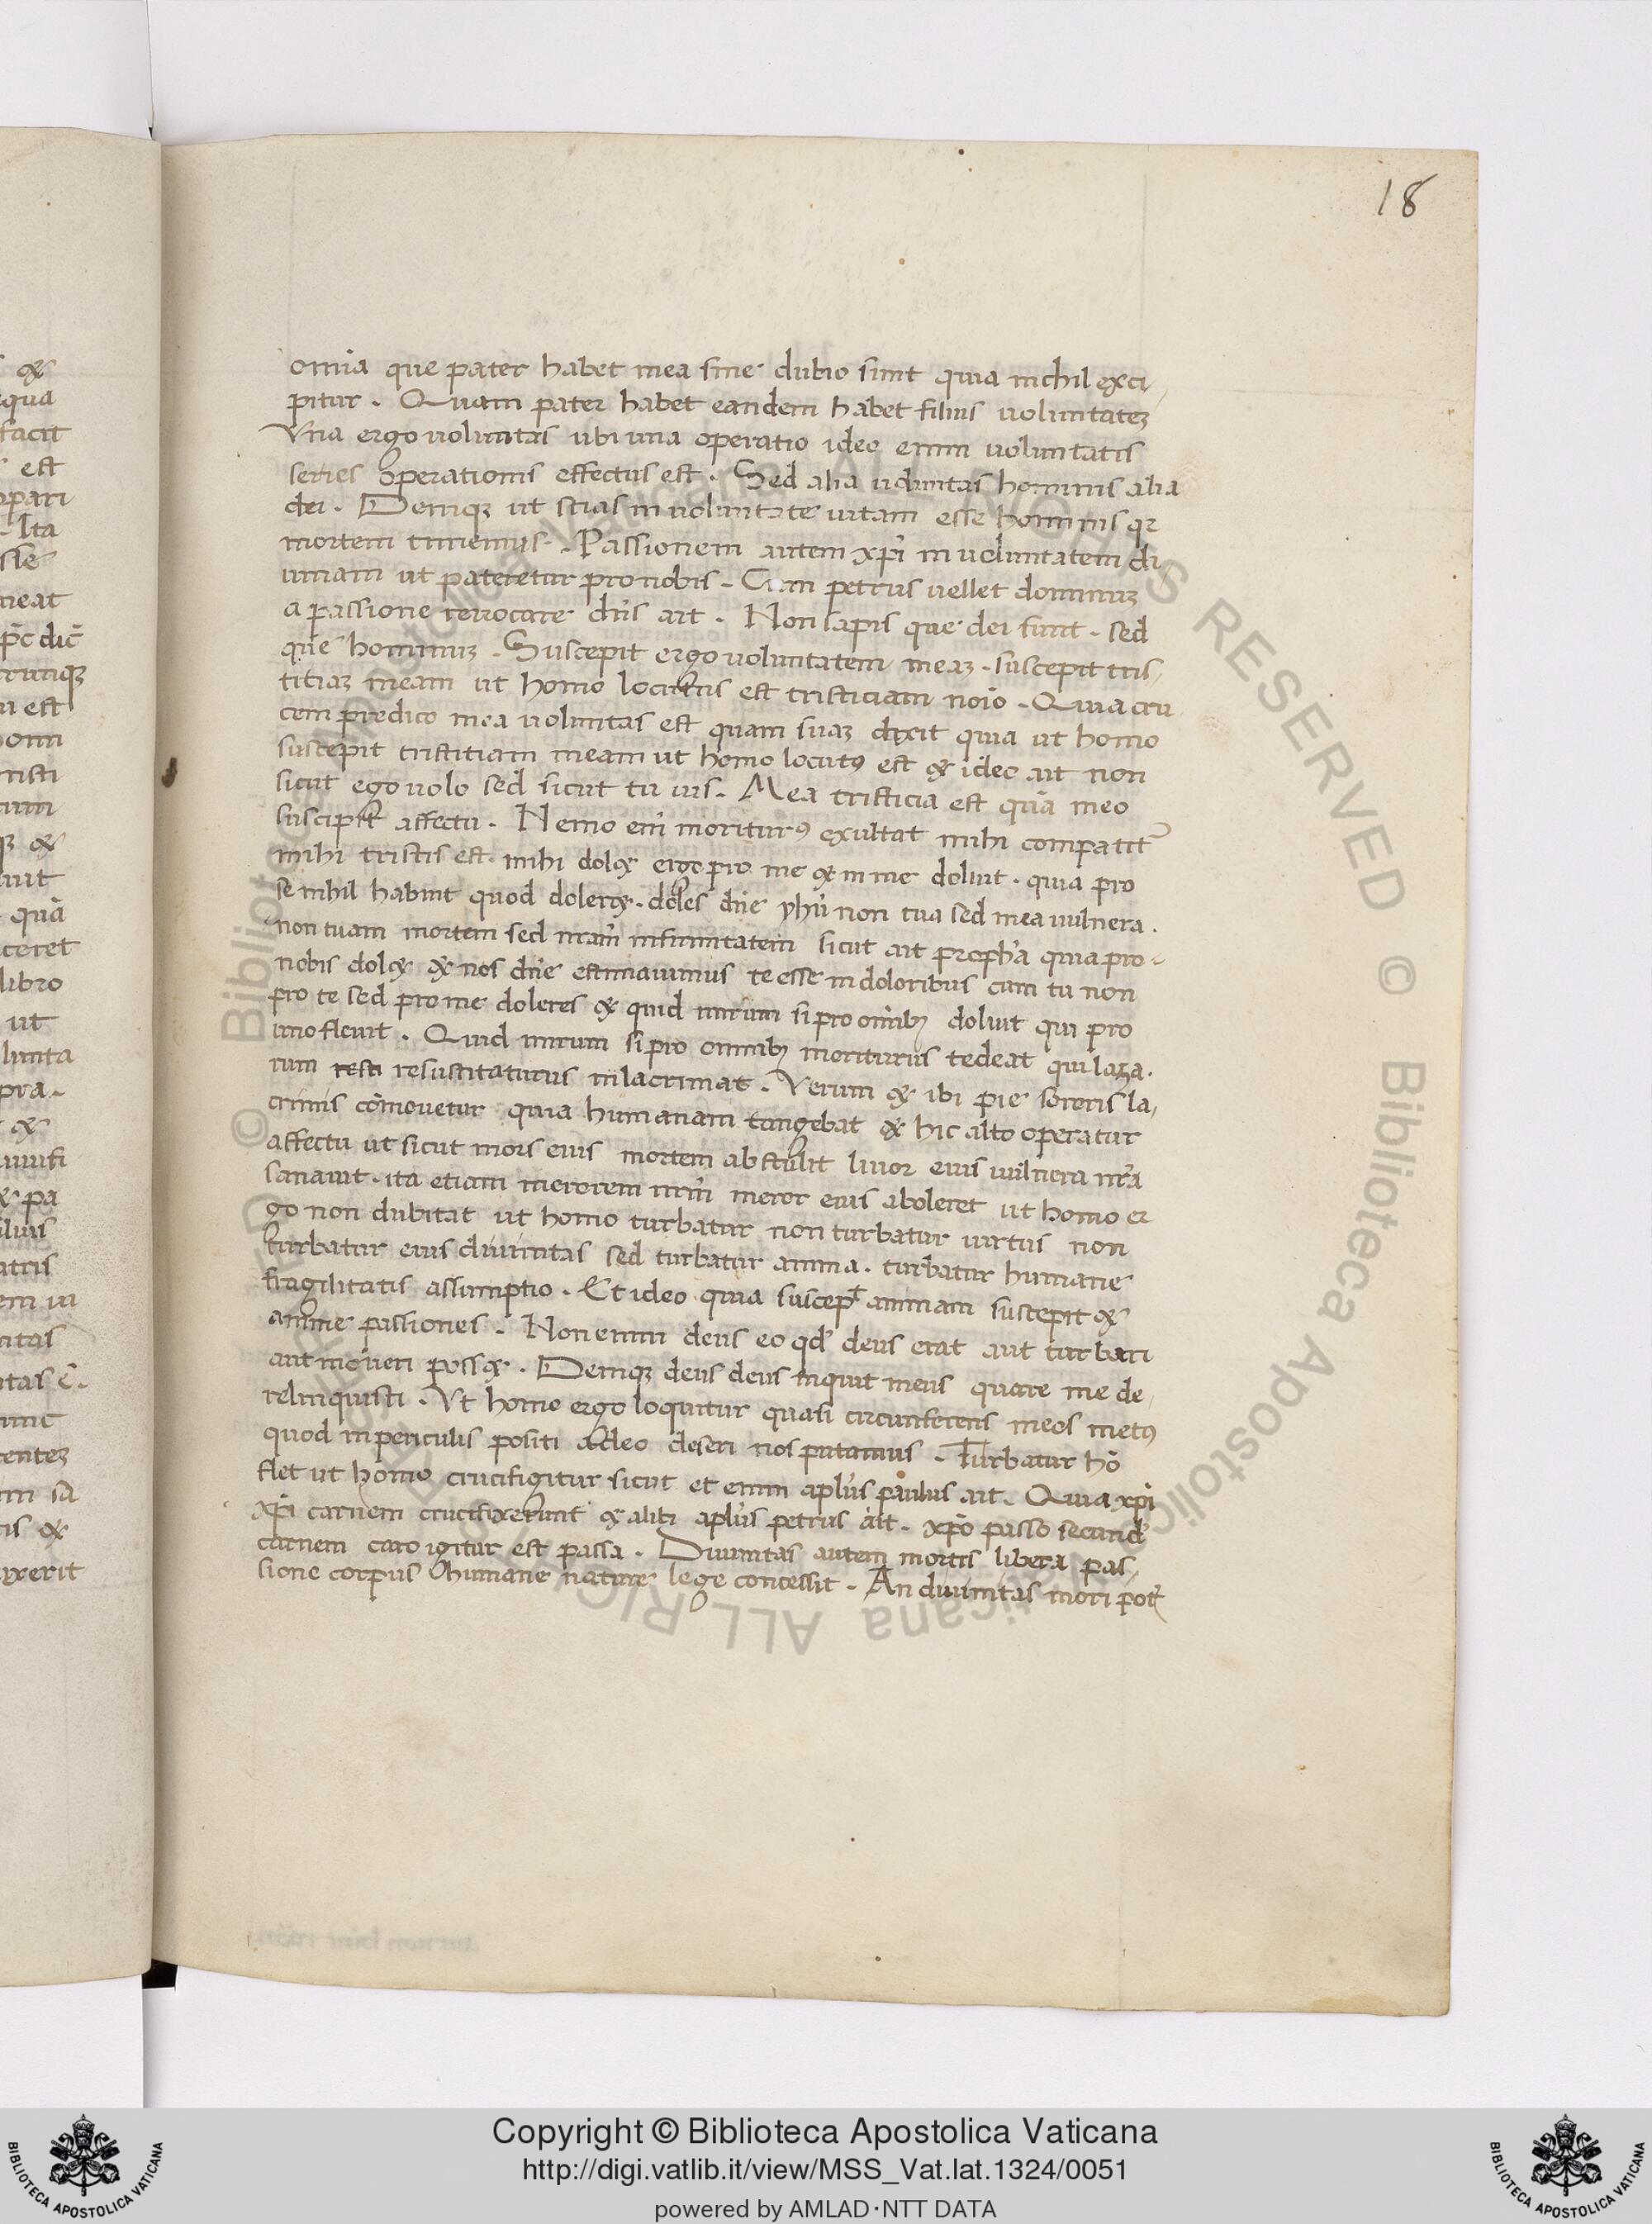 18
omīa que pater habet mea sine dubio sunt quia nichil exci
pitur. Quam pater habet eandem habet filius uoluntateꝫ
Vna ergo uoluntas ubi una operatio ideo enim uoluntatis
series operationis effectus est. Sed alia uoluntas hominis alia
dei. Deniqꝫ ut scias in uoluntate uitam esse hominis qꝛ
mortem timemus. Passionem autem xp̄i in uoluntatem di
uinam ut pateretur pro nobis. Cum petrus uellet dominuꝫ
a passione reuocare dn̄s ait. Non sapis que dei sunt. sed
que hominuꝫ. Suscepit ergo uoluntatem meaꝫ. suscepit tris
titiaꝫ meam ut homo locutus est tristiciam noīo. Quia cru
cem predico mea uoluntas est quam suaꝫ dixit quia ut homo
suscepit tristitiam meam ut homo locutꝰ est & ideo ait non
sicut ego uolo sed sicut tu uis. Mea tristicia est quā meo
suscipit affectu. Nemo enī moriturꝰ exultat mihi compatit᷑
mihi tristis est. mihi dol& ergo pro me & in me doluit. quia pro
se nihil habuit quod doler&. doles dn̄e yhū non tua sed mea uulnera.
non tuam mortem sed nr̄am infirmitatem sicut ait proph̄a quia pro
nobis dol& & nos dn̄e estimauimus te esse in doloribus cum tu non
pro te sed pro me doleres & quid mirum si pro omībꝫ doluit qui pro
uno fleuit. Quid mirum si pro omnibꝫ moriturus tedeat qui laza.
rum resti resuscitaturus inlacrimat. Verum & ibi pie sororis la
crimis cōmouetur quia humanam tangebat & hic alto operatur
affectu ut sicut mors eius mortem abstulit liuor eius uulnera nr̄a
sanauit. ita etiam merorem nr̄m meror eius aboleret ut homo er
go non dubitat ut homo turbatur non turbatur uirtus non
turbatur eius diuinitas sed turbatur anima. turbatur humane
fragilitatis assumptio. Et ideo quia suscepᵗ animam suscepit &
anime passiones. Non enim deus eo qd̓ deus erat aut turbari
aut moueri poss&. Deniqꝫ deus deus inquit meus quare me de
relinquisti. Vt homo ergo loquitur quasi circunferens meos metꝰ
quod in periculis positi a deo deseri nos putamus. Turbatur hō
flet ut homo crucifigitur sicut et enim aplūs paulus ait. Quia xp̄i
xp̄i carnem crucifixerunt & alibi aplūs petrus ait. xp̄o passo secund̓
carnem caro igitur est passa. Diuinitas autem mortis libera pas
sione corpus humane nature lege concessit. An diuinitas mori pot᷑
Copyright © Biblioteca Apostolica Vaticana
http://digi.vatlib.it/view/MSS_Vat.lat.1324/0051
powered by AMLAD·NTT DATA